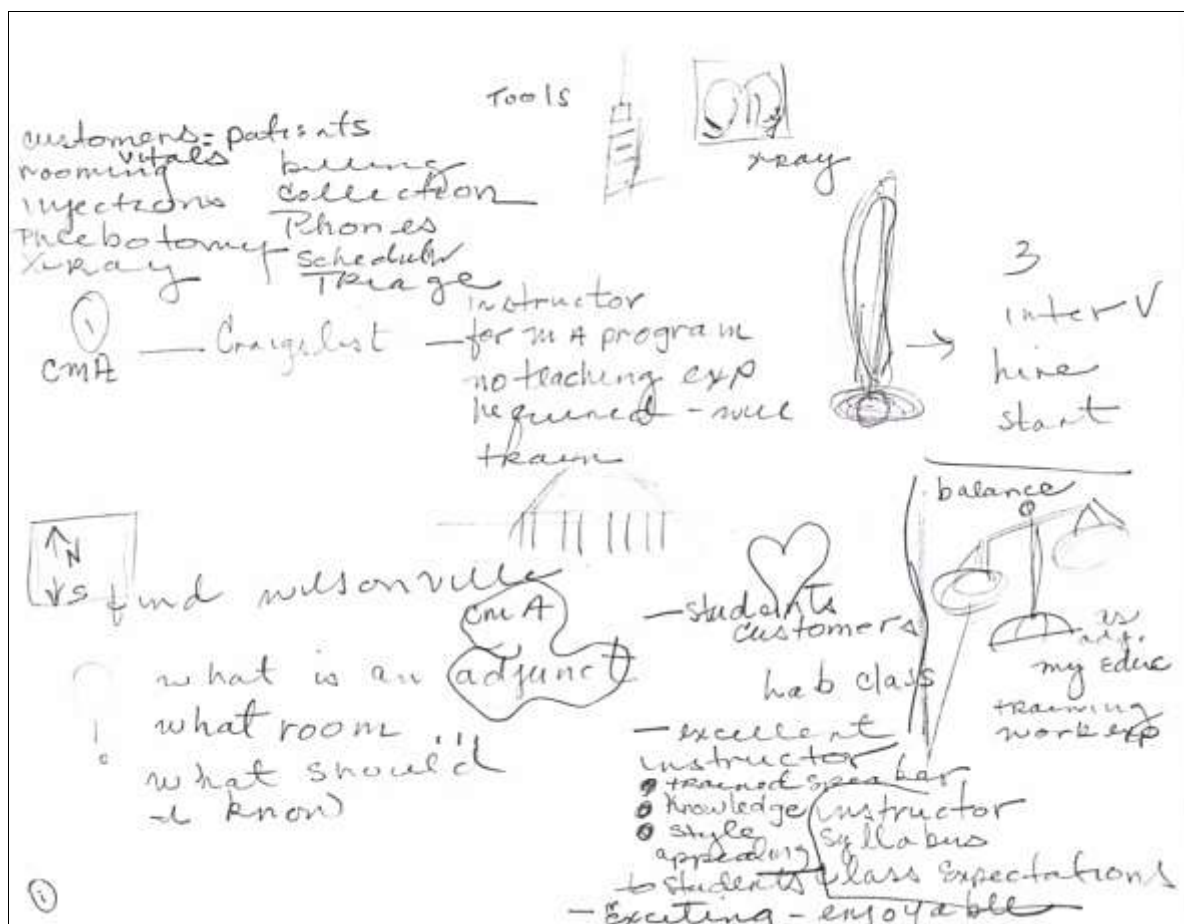 Tools
customers = patients
rooming vitals
injections
Phlebotomy
X-Ray
billing
collection
Phones
Schedule
TRiage
xray
CMA — Craigslist — instructor
for MA program
no teaching exp
required - will
train
3
interV
hire
start
N
S
find wilsonville
CMA
what is an adjunct
what room
what should
I know
— students
customers
Lab class
— excellent
instructor
trained speaker
Knowledge
style
appealing
to students
instructor
Syllabus
Class Expectations
— Exciting - enjoyable
balance
vs
my Educ
training
work exp
i